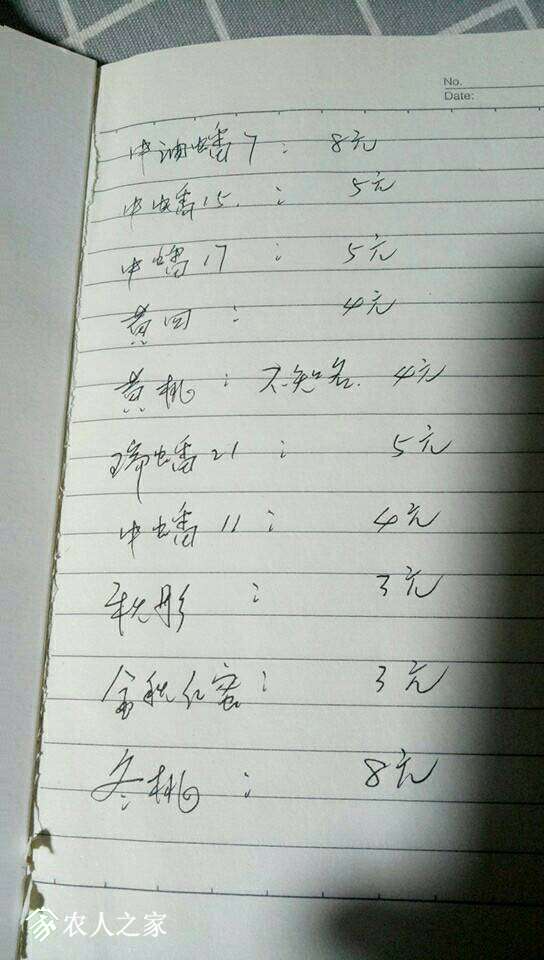 No.
Date:
中油蟠7: 8元
中蟠15: 5元
中蟠17: 5元
黄四: 4元
黄桃: 不知名. 4元
瑞蟠21: 5元
中蟠11: 4元
秋彤: 3元
金秋红蜜: 3元
冬桃: 8元
农人之家